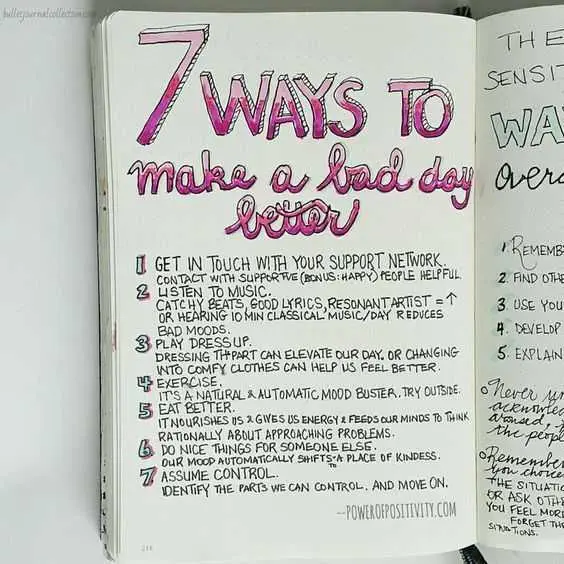 bulletjournalcollection.com
7 WAYS TO
make a bad day
better
1 GET IN TOUCH WITH YOUR SUPPORT NETWORK.
CONTACT WITH SUPPORTIVE (BONUS: HAPPY) PEOPLE HELPFUL
2 LISTEN TO MUSIC.
CATCHY BEATS, GOOD LYRICS, RESONANT ARTIST = ↑
OR HEARING 10 MIN CLASSICAL MUSIC/DAY REDUCES
BAD MOODS.
3 PLAY DRESS UP.
DRESSING TH PART CAN ELEVATE OUR DAY. OR CHANGING
INTO COMFY CLOTHES CAN HELP US FEEL BETTER.
4 EXERCISE.
IT'S A NATURAL & AUTOMATIC MOOD BUSTER. TRY OUTSIDE.
5 EAT BETTER.
IT NOURISHES US & GIVES US ENERGY & FEEDS OUR MINDS TO THINK
RATIONALLY ABOUT APPROACHING PROBLEMS.
6 DO NICE THINGS FOR SOMEONE ELSE.
OUR MOOD AUTOMATICALLY SHIFTS TO A PLACE OF KINDESS.
7 ASSUME CONTROL.
IDENTIFY THE PARTS WE CAN CONTROL. AND MOVE ON.
--POWEROFPOSITIVITY.COM
THE
SENSIT
WA
overc
1 REMEMB
2. FIND OTHE
3 USE YOU
4. DEVELOP
5. EXPLAIN
Never un
acknowled
around,
the peopl
Remember
you choice
THE SITUATIO
OR ASK OTHE
YOU FEEL MOR
FORGET THE
SITUATIONS.